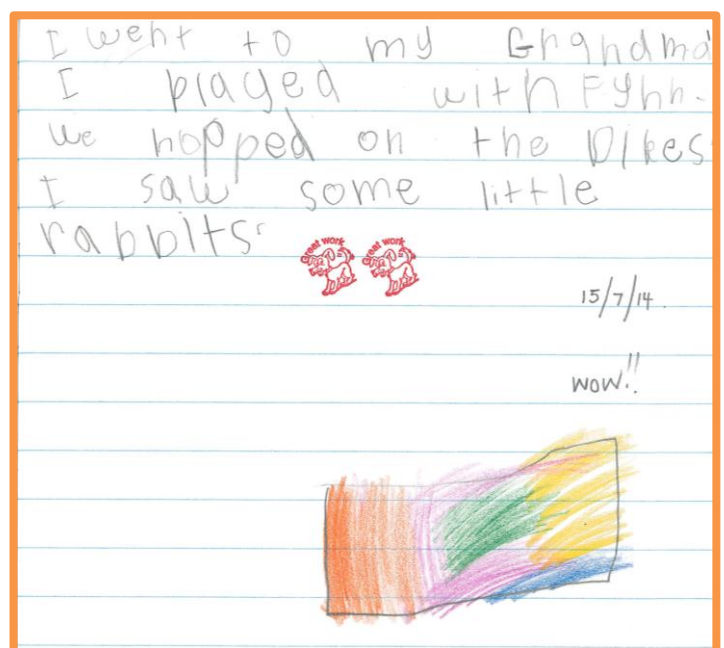 I went to my Grandma
I played with Fynn.
we hopped on the Dikes
I saw some little
rabbits.
Great work Great work
15/7/14.
wow!!